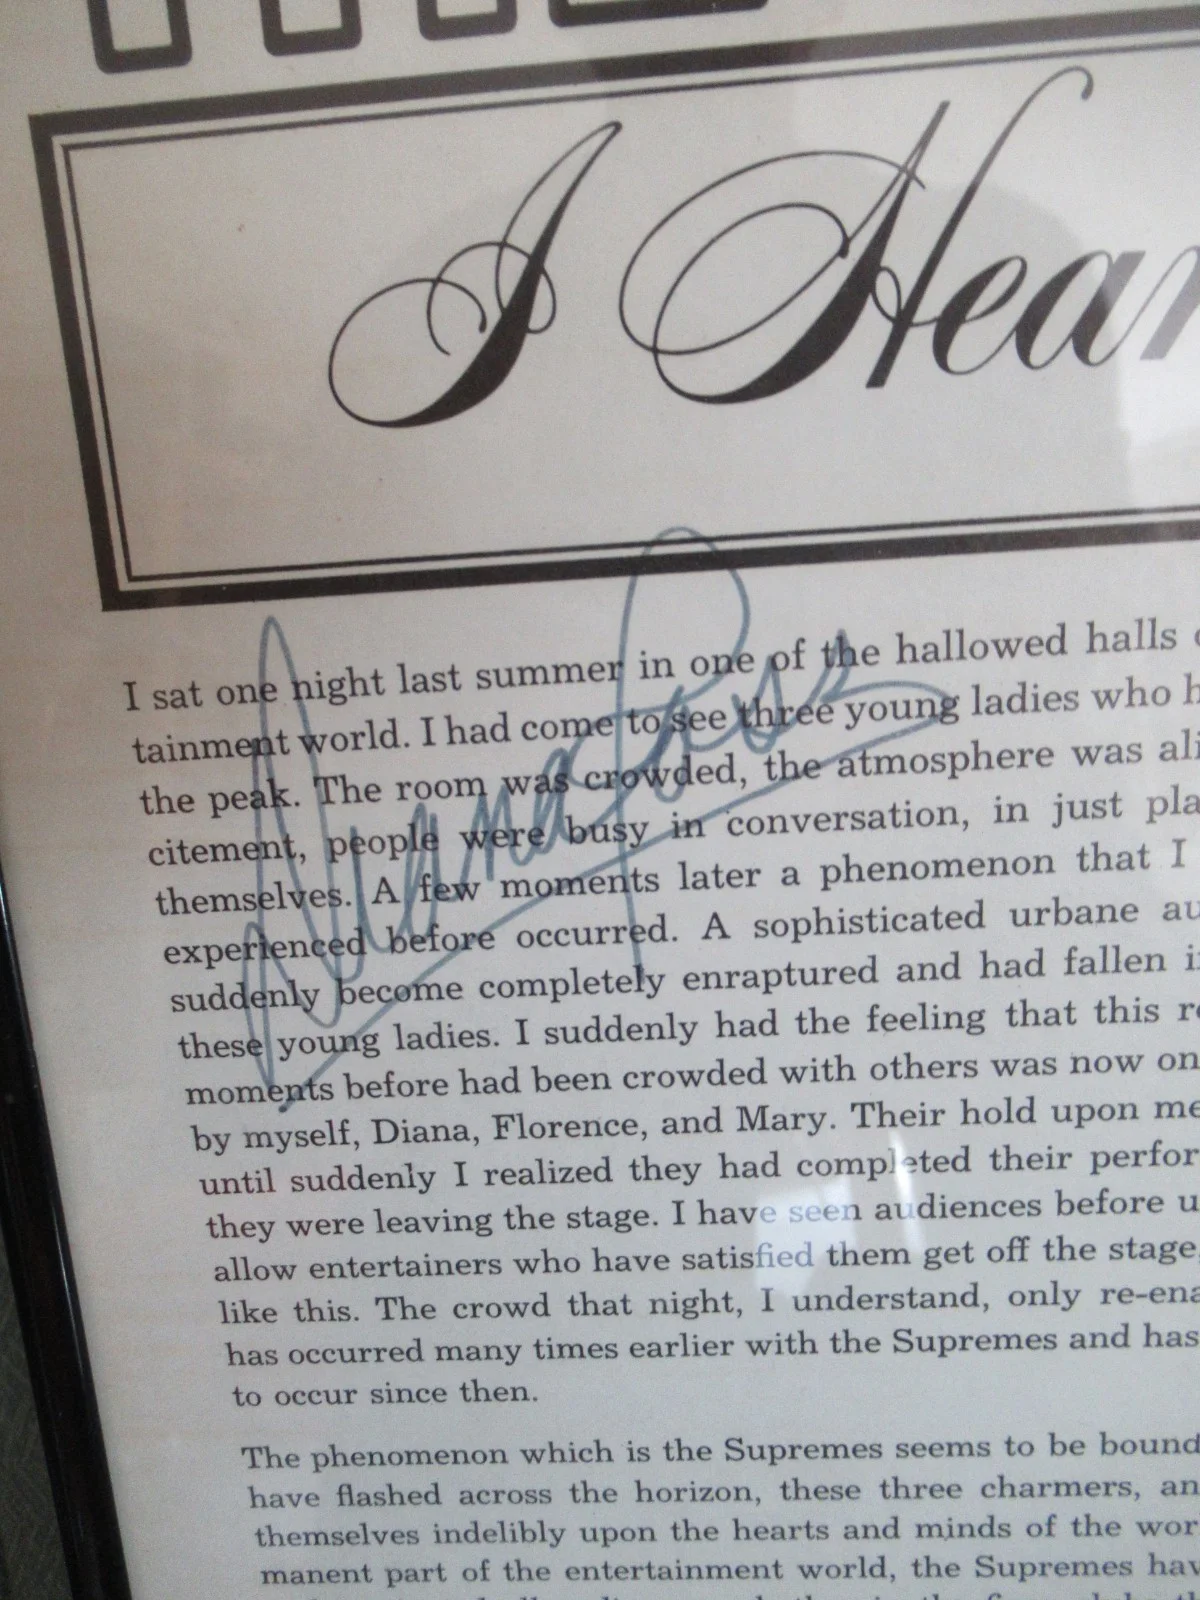 I Hear
Diana Ross
I sat one night last summer in one of the hallowed halls
tainment world. I had come to see three young ladies who
the peak. The room was crowded, the atmosphere was
citement, people were busy in conversation, in just
themselves. A few moments later a phenomenon that I
experienced before occurred. A sophisticated urbane
suddenly become completely enraptured and had fallen
these young ladies. I suddenly had the feeling that this
moments before had been crowded with others was now
by myself, Diana, Florence, and Mary. Their hold upon
until suddenly I realized they had completed their
they were leaving the stage. I have seen audiences before
allow entertainers who have satisfied them get off the stage,
like this. The crowd that night, I understand, only
has occurred many times earlier with the Supremes and has
to occur since then.
The phenomenon which is the Supremes seems to be
have flashed across the horizon, these three charmers,
themselves indelibly upon the hearts and minds of the
manent part of the entertainment world, the Supremes